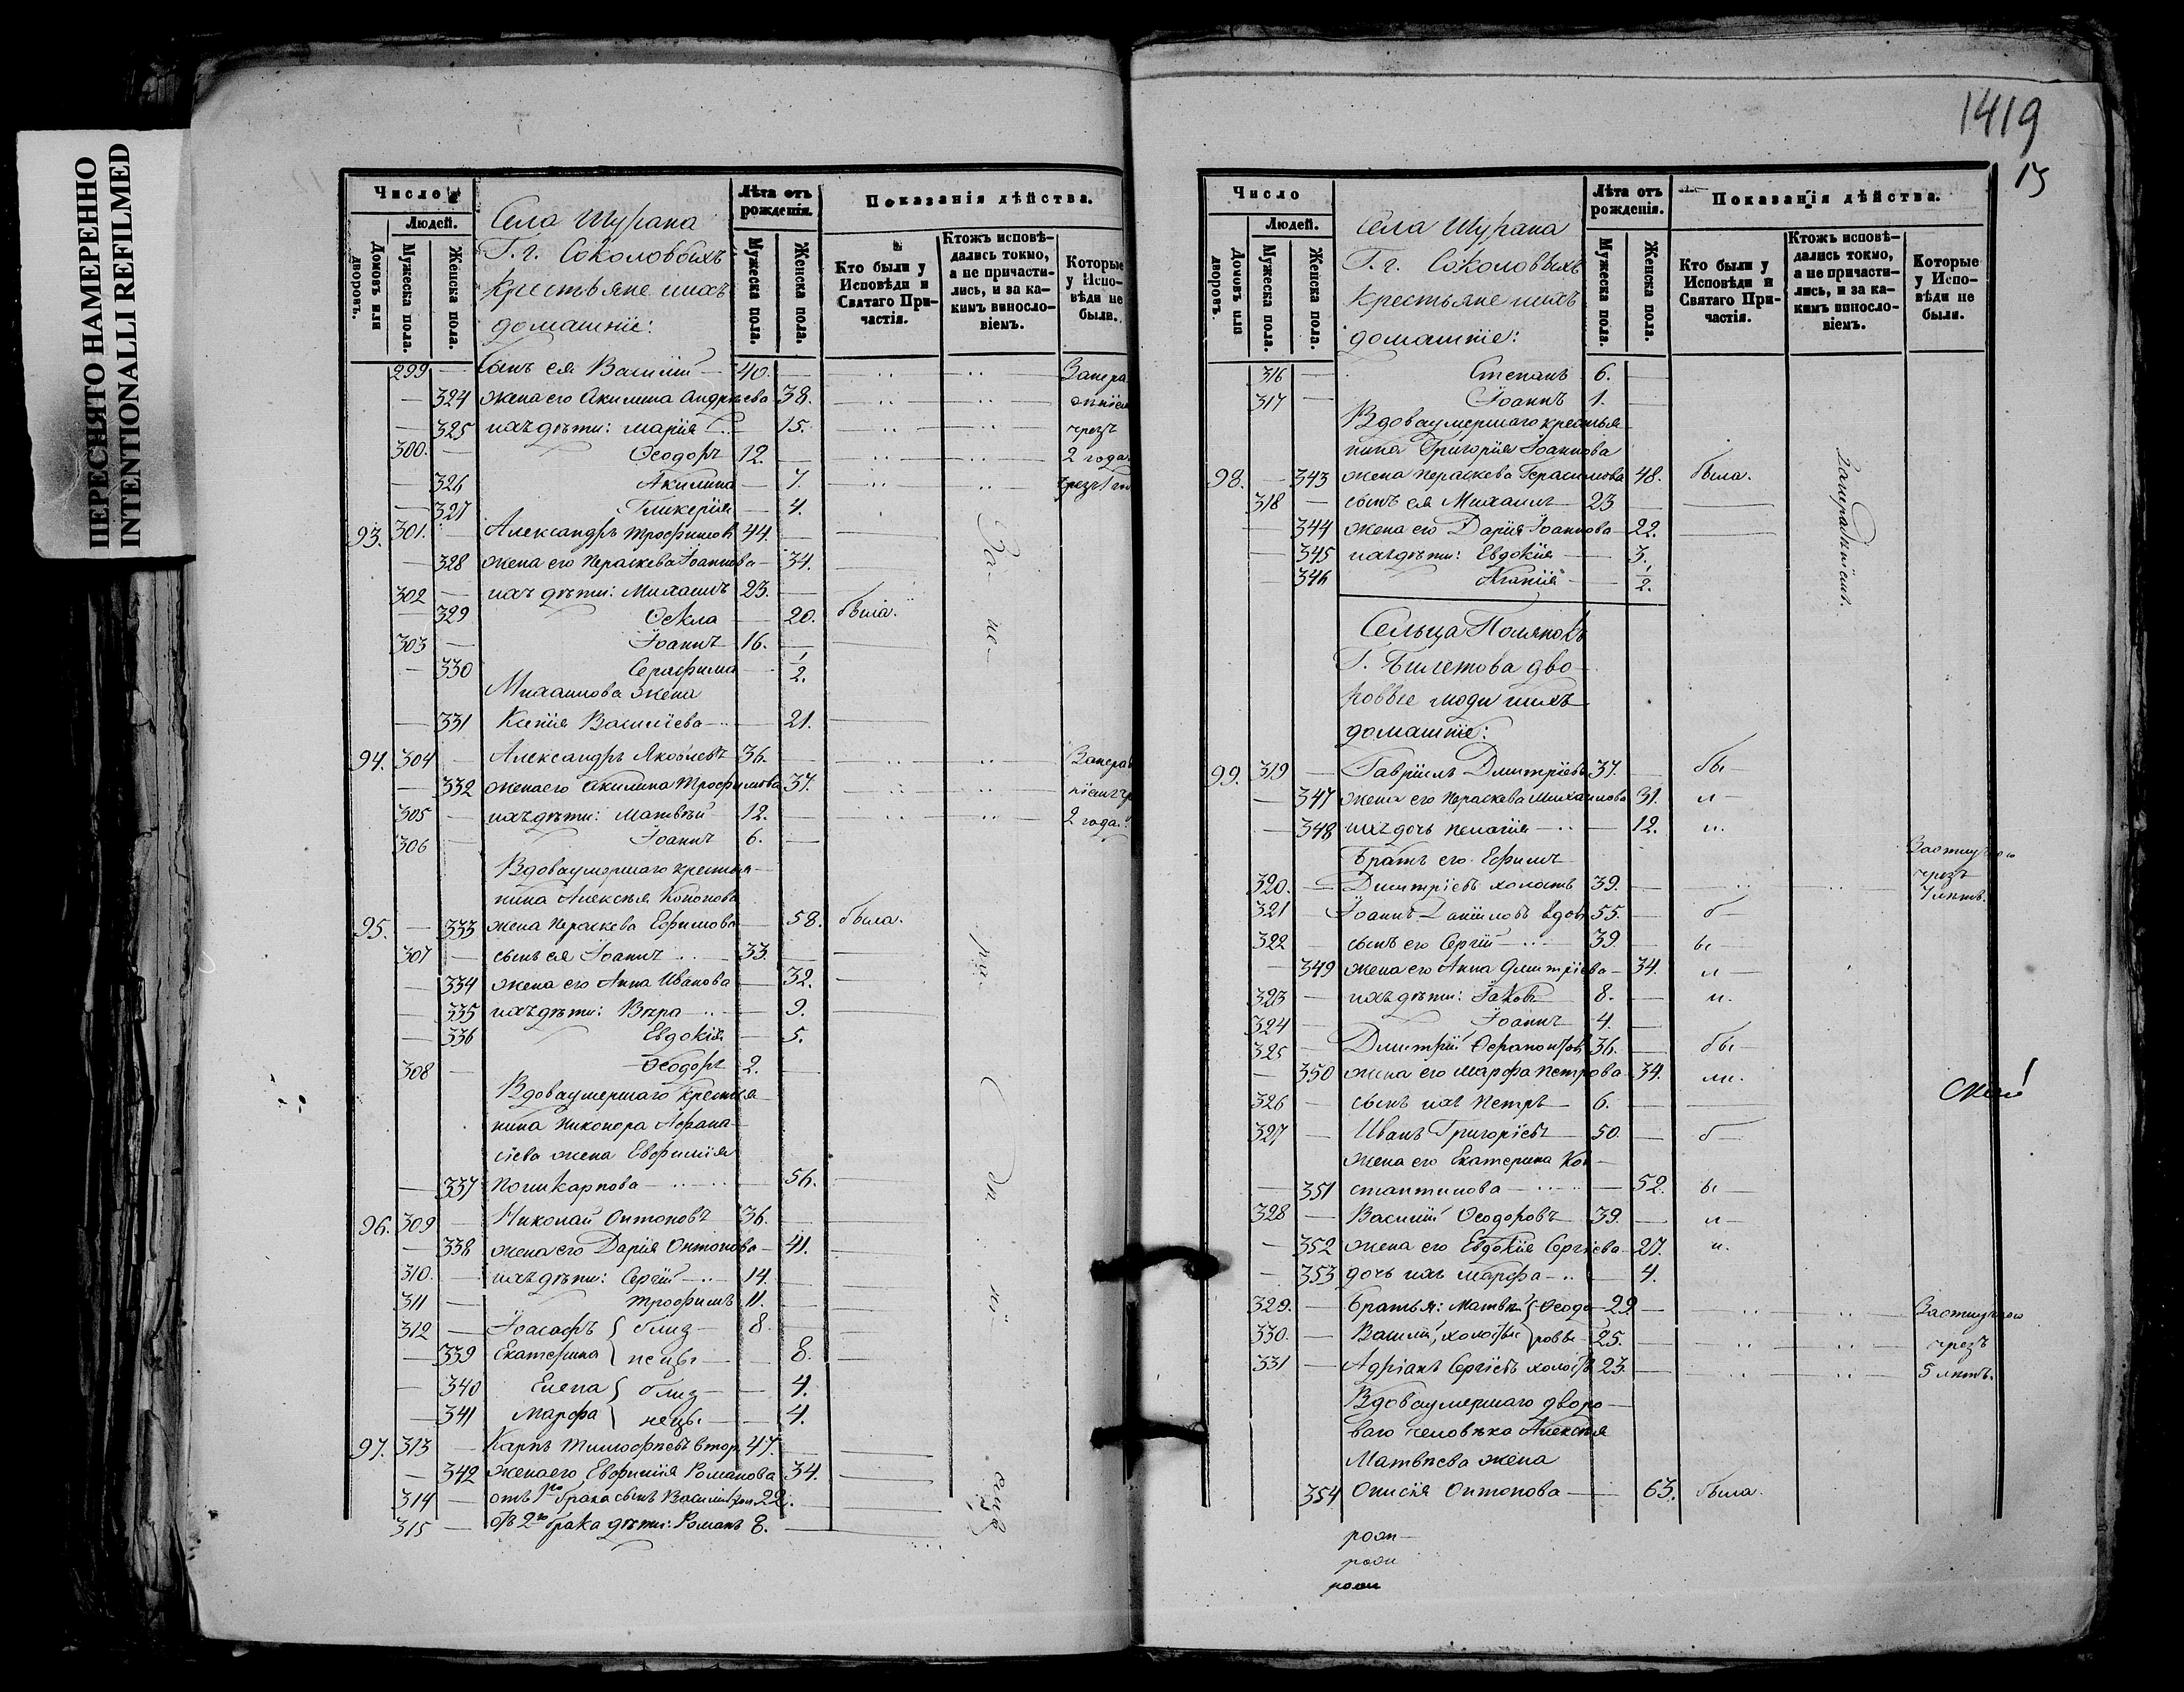 ПЕРЕСНЯТО НАМЕРЕННО
INTENTIONALLI REFILMED
Число
Людей.
Домовъ или дворовъ.
Мужеска пола.
Женска пола.
Села Шурана
Г. г. Соколовыхъ
крестьяне и ихъ
домашніе:
Лѣта отъ рожденія.
Мужеска пола.
Женска пола.
Показанія дѣйства.
Кто были у Исповѣди и Святаго Причастія.
Ктожъ исповѣдались токмо, а не причастились, и за какимъ винословіемъ.
Которые у Исповѣди не были.
299 сынъ ея Василій 40.
324 жена его Акилина Андреева 38.
325 ихъ дѣти: Марія 15. чрезъ
300. Ѳеодоръ 12. 2 года
326 Акилина 7.
327 Гликерія 4.
93. 301. Александръ Трофимовъ 44.
328 жена его Параскева Іоаннова 34.
302 ихъ дѣти: Михаилъ 23.
329 Ѳекла 20. была.
303 Іоаннъ 16.
330 Серафима 1/2.
Михаилова жена
331 Ксенія Василіева 21.
94. 304 Александръ Яковлевъ 36.
332 жена его Акилина Трофимова 37.
305 ихъ дѣти: Матвѣй 12. 2 года.
306 Іоаннъ 6.
Вдова умершаго крестья-
нина Алексѣя Кононова
95. 333 жена Параскева Ефимова 58. была.
307 сынъ ея Іоаннъ 33.
334 жена его Анна Иванова 32.
335 ихъ дѣти: Вѣра 9.
336 Евдокія 5.
308 Ѳеодоръ 2.
Вдова умершаго крестья-
нина Никонора Афана-
сіева жена Евфимія
337 Поликарпова 56.
96. 309 Николай Антоновъ 36.
338 жена его Дарія Антонова 41.
310. ихъ дѣти: Сергій 14.
311 Трофимъ 11.
312 Іоасафъ близ- 8
339 Екатерина нецы 8.
340 Елена близ- 4.
341 Марфа нецы 4.
97. 313 Карпъ Тимофѣевъ втор. 47.
342 жена его Евфимія Романова 34.
314 отъ 1го брака сынъ Василій 22.
315 отъ 2го брака дѣти: Романъ 8.
1419
13
Число
Людей.
Домовъ или дворовъ.
Мужеска пола.
Женска пола.
Села Шурана
Г. г. Соколовыхъ
крестьяне и ихъ
домашніе:
Лѣта отъ рожденія.
Мужеска пола.
Женска пола.
Показанія дѣйства.
Кто были у Исповѣди и Святаго Причастія.
Ктожъ исповѣдались токмо, а не причастились, и за какимъ винословіемъ.
Которые у Исповѣди не были.
316 Степанъ 6.
317 Іоаннъ 1.
Вдова умершаго крестья-
нина Григорія Іоаннова
98. 343 жена Параскева Герасимова 48. была.
318 сынъ ея Михаилъ 23
344 жена его Дарія Іоаннова 22.
345 ихъ дѣти: Евдокія 3.
346 Агапія 1/2.
Сельца Полянокъ
Г. Билетова дво-
ровые люди и ихъ
домашніе:
99. 319 Гавріилъ Дмитріевъ 37. бы-
347 жена его Параскева Михаилова 31. л-
348 ихъ дочь Пелагія 12. и.
Братъ его Ефимъ
320. Дмитріевъ холостъ 39. чрезъ 7 лѣтъ.
321 Іоаннъ Даніиловъ вдовъ 55. б-
322 сынъ его Сергій 39. ы-
349 жена его Анна Дмитріева 34. л-
323 ихъ дѣти: Іаковъ 8. и.
324 Іоаннъ 4.
325 Дмитрій Ферапонтовъ 36. бы-
350 жена его Марфа Петрова 34. ли.
326 сынъ ихъ Петръ 6.
327 Иванъ Григоріевъ 50. б-
жена его Екатерина Кон-
351 стантинова 52. ы-
328 Василій Ѳеодоровъ 39. л-
352 жена его Евдокія Сергіева 27. и.
353 дочь ихъ Марфа 4.
329. Братья: Матвѣй Ѳеодо- 29.
330. Василій, холосты ровы 25. чрезъ
331 Адріанъ Сергіевъ холостъ 23. 5 лѣтъ.
Вдова умершаго дворо-
ваго человѣка Алексѣя
Матвѣева жена
354 Анисія Антонова 63. была.